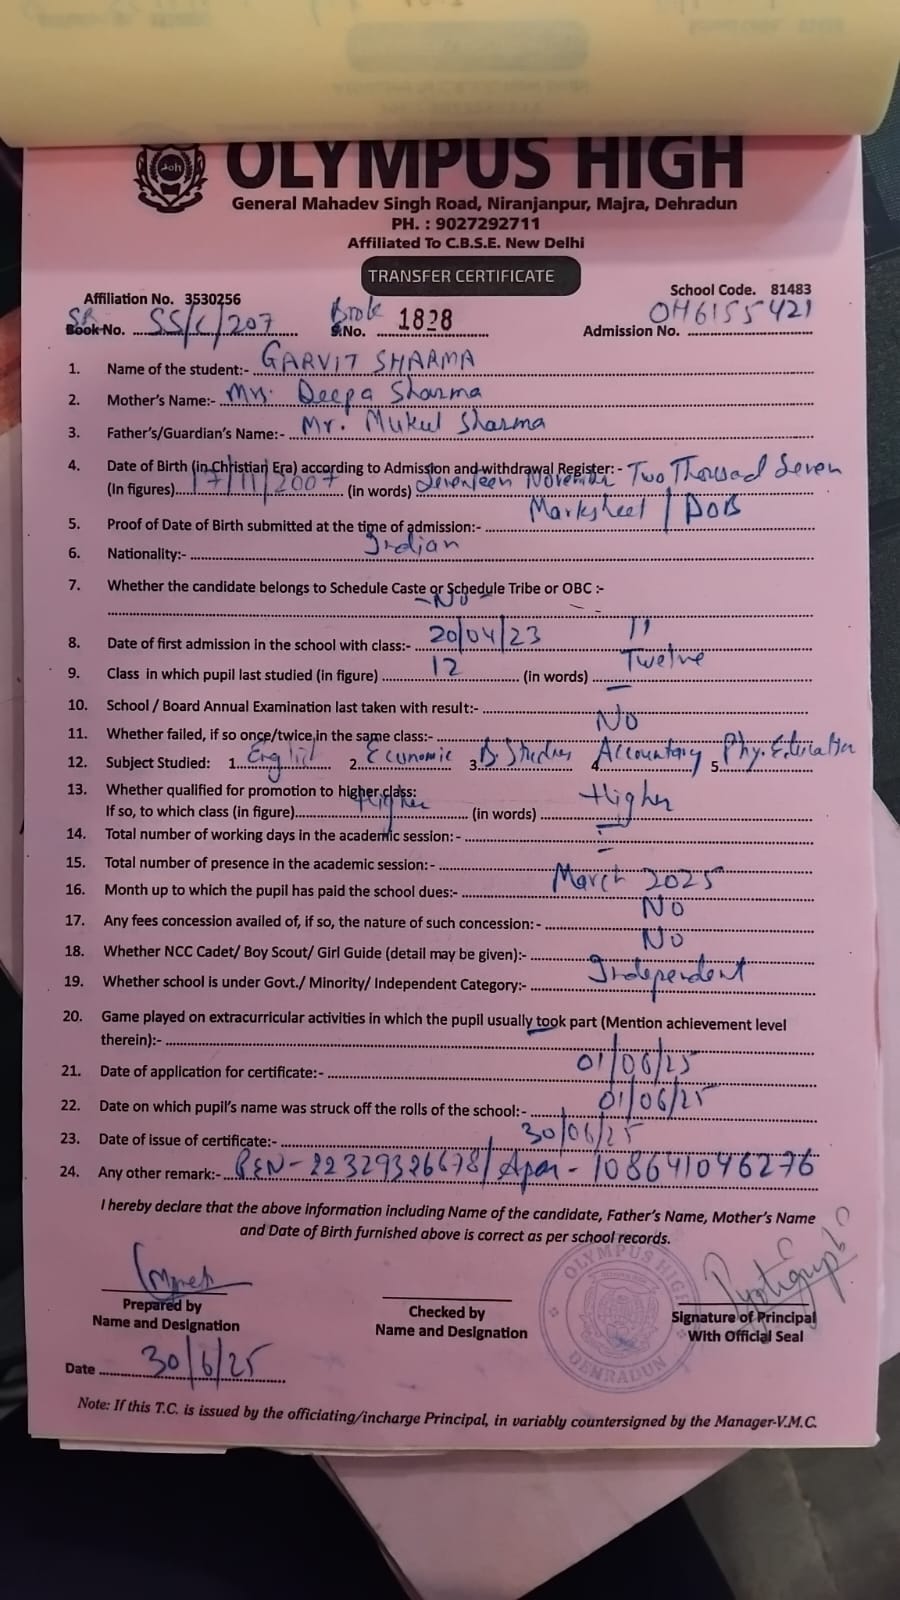 OLYMPUS HIGH
General Mahadev Singh Road, Niranjanpur, Majra, Dehradun
PH. : 9027292711
Affiliated To C.B.S.E. New Delhi
TRANSFER CERTIFICATE
Affiliation No. 3530256 School Code. 81483
SR Book No. SS/C/207 Book S.No. 1828 Admission No. OH6155421
1. Name of the student:- GARVIT SHARMA
2. Mother's Name:- Mrs. Deepa Sharma
3. Father's/Guardian's Name:- Mr. Mukul Sharma
4. Date of Birth (in Christian Era) according to Admission and withdrawal Register: - Two Thousad Seven
(In figures) 17/11/2007 (in words) Seventeen November
5. Proof of Date of Birth submitted at the time of admission:- Marksheet / DOB
6. Nationality:- Indian
7. Whether the candidate belongs to Schedule Caste or Schedule Tribe or OBC :-
-No-
8. Date of first admission in the school with class:- 20/04/23 11
9. Class in which pupil last studied (in figure) 12 (in words) Twelve
10. School / Board Annual Examination last taken with result:- —
11. Whether failed, if so once/twice,in the same class:- No
12. Subject Studied: 1. English 2. Economic 3. B. Studies 4. Accountary 5. Phy. Education
13. Whether qualified for promotion to higher class:
If so, to which class (in figure) Higher (in words) Higher
14. Total number of working days in the academic session: - —
15. Total number of presence in the academic session: - —
16. Month up to which the pupil has paid the school dues:- March 2025
17. Any fees concession availed of, if so, the nature of such concession: - No
18. Whether NCC Cadet/ Boy Scout/ Girl Guide (detail may be given):- No
19. Whether school is under Govt./ Minority/ Independent Category:- Independent
20. Game played on extracurricular activities in which the pupil usually took part (Mention achievement level
therein):- —
21. Date of application for certificate:- 01/06/25
22. Date on which pupil's name was struck off the rolls of the school:- 01/06/25
23. Date of issue of certificate:- 30/06/25
24. Any other remark:- PEN-22329326678/ Apar - 108641046276
I hereby declare that the above information including Name of the candidate, Father's Name, Mother's Name
and Date of Birth furnished above is correct as per school records.
OLYMPUS HIGH
DEHRADUN
Prepared by
Name and Designation
Checked by
Name and Designation
Signature of Principal
With Official Seal
Date 30/6/25
Note: If this T.C. is issued by the officiating/incharge Principal, in variably countersigned by the Manager-V.M.C.